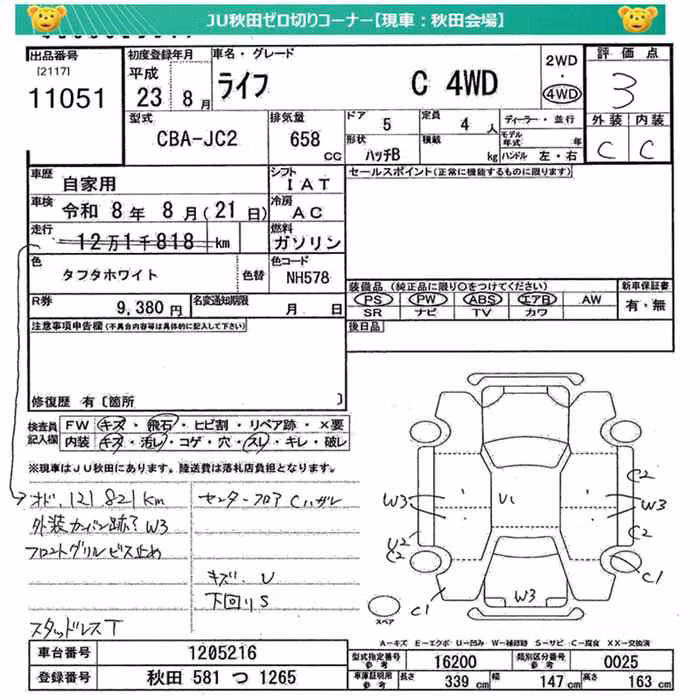 JU秋田ゼロ切りコーナー【現車：秋田会場】
出品番号
[2117]
11051
初度登録年月
平成
23 年 8 月
車名・グレード
ライフ C 4WD
2WD
・
4WD
評価点
3
外装 内装
C C
型式
CBA-JC2
排気量
658
CC
ドア 5
定員 4 人
形状 ハッチB
積載 kg
ディーラー・並行
モデル年式 年
ハンドル 左・右
車歴 自家用
シフト IAT
車検 令和 8 年 8 月(21 日)
冷房 AC
走行 12万1千818 km
燃料 ガソリン
色 タフタホワイト 色替
色コード NH578
R券 9,380 円
名変通知期限 月 日
セールスポイント(正常に機能するものに限ります)
装備品(純正品に限り○をつけてください)
PS PW ABS エアB AW
SR ナビ TV カワ
新車保証書
有・無
後日品
注意事項申告欄(不具合内容等は具体的に記入して下さい)
修復歴 有〔箇所 〕
検査員記入欄
FW キズ・飛石・ヒビ割・リペア跡・×要
内装 キズ・汚レ・コゲ・穴・スレ・キレ・破レ
※現車はJU秋田にあります。陸送費は落札店負担となります。
オド、121,821km
外装カーバン跡? W3
フロントグリルビス止め
スタッドレスT
センターフロア Cハガレ
キズ・U
下回りS
W3
U2
C2
C1
U1
W3
C2
W3
C2
C1
スペア
A-キズ E-エクボ U-凹み W-補修跡 S-サビ C-腐食 XX-交換済
車台番号 1205216
登録番号 秋田 581 つ 1265
型式指定番号 参考 16200
類別区分番号 参考 0025
車庫証明用 参考 長さ 339 cm 幅 147 cm 高さ 163 cm